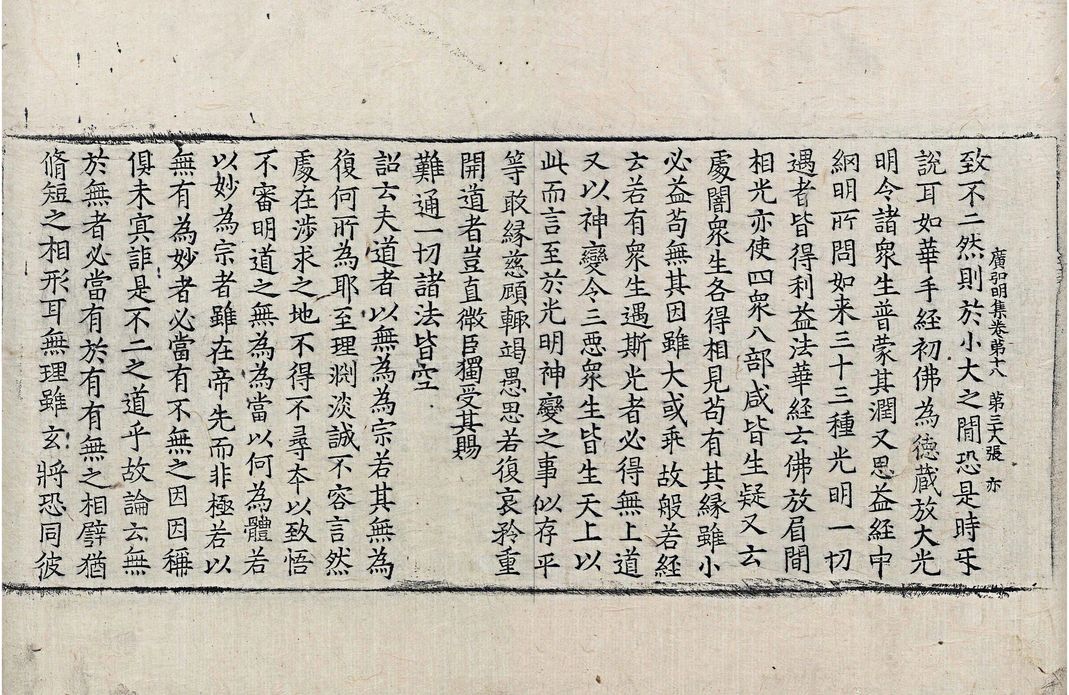 廣弘明集卷第十八　第三十八張　亦
致不二然則於小大之間恐是時乎
說耳如華手經初佛為德藏放大光
明令諸衆生普蒙其潤又思益經中
網明所問如来三十三種光明一切
遇者皆得利益法華經云佛放眉間
相光亦使四衆八部咸皆生疑又云
處闇衆生各得相見苟有其緣雖小
必益苟無其因雖大或乖故般若經
云若有衆生遇斯光者必得無上道
又以神變令三惡衆生皆生天上以
此而言至於光明神變之事似存乎
等敢緣慈顧輙竭愚思若復哀矜重
開道者豈直微臣獨受其賜
難通一切諸法皆空
詔云夫道者以無為為宗若其無為
復何所為耶至理淵淡誠不容言然
處在涉求之地不得不尋夲以致悟
不審明道之無為為當以何為體若
以妙為宗者雖在帝先而非極若以
無有為妙者必當有不無之因因稱
俱未㝠詎是不二之道乎故論云無
於無者必當有於有有無之相譬猶
脩短之相形耳無理雖玄將恐同彼